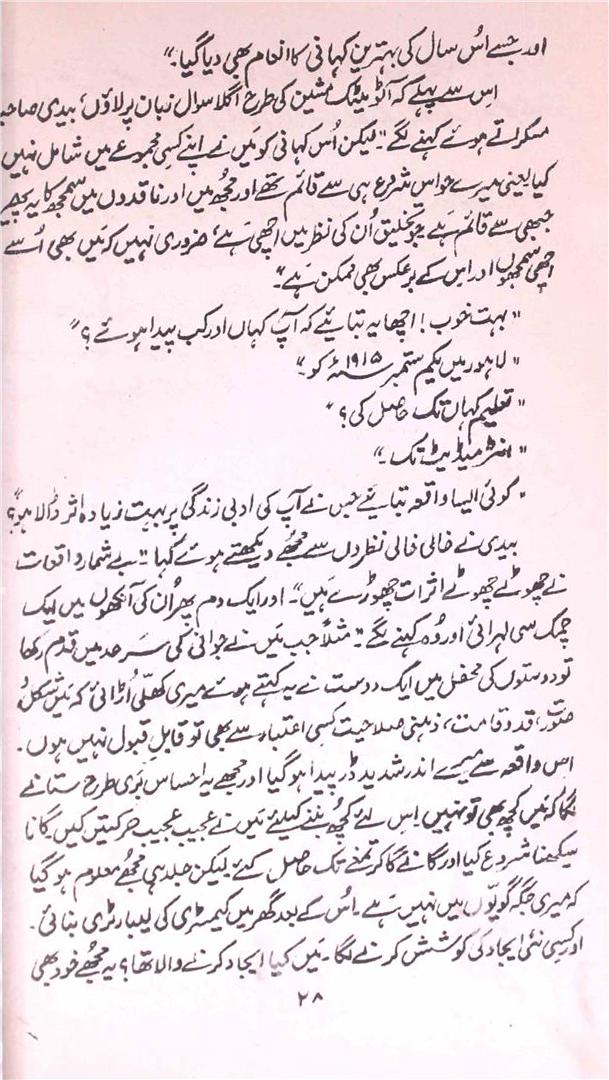 اور جسے اُس سال کی بہترین کہانی کا انعام بھی دیا گیا۔"
اس سے پہلے کہ آٹومیٹک مشین کی طرح اگلا سوال زبان پر لاؤں، بیدی صاحب
مسکراتے ہوئے کہنے لگے "لیکن اُس کہانی کو میں نے اپنے کسی مجموعے میں شامل نہیں
کیا یعنی میرے حواس شروع ہی سے قائم تھے اور مجھ میں اور ناقدوں میں سمجھ کا یہ پھیر
جبھی سے قائم ہے جو تخلیق اُن کی نظر میں اچھی ہے، ضروری نہیں کہ میں بھی اُسے
اچھی سمجھوں اور اس کے برعکس بھی ممکن ہے۔"
"بہت خوب! اچھا یہ بتائیے کہ آپ کہاں اور کب پیدا ہوئے؟"
"لاہور میں یکم ستمبر ۱۹۱۵ء کو۔"
"تعلیم کہاں تک حاصل کی؟"
"انٹرمیڈیٹ تک۔"
"کوئی ایسا واقعہ بتایئے جس نے آپ کی ادبی زندگی پر بہت زیادہ اثر ڈالا ہو؟"
بیدی نے خالی خالی نظروں سے مجھے دیکھتے ہوئے کہا "بے شمار واقعات
نے چھوٹے چھوٹے اثرات چھوڑے ہیں"۔ اور ایک دم پھر اُن کی آنکھوں میں ایک
چمک سی لہرائی اور وہ کہنے لگے۔ "مثلاً جب میں نے جوانی کی سرحد میں قدم رکھا
تو دوستوں کی محفل میں ایک دوست نے یہ کہتے ہوئے میری کھلّی اُڑائی کہ میں شکل و
صورت، قد و قامت، ذہنی صلاحیت کسی اعتبار سے بھی تو قابلِ قبول نہیں ہوں۔
اس واقعہ سے میرے اندر شدید ڈر پیدا ہو گیا اور مجھے یہ احساس بُری طرح ستانے
لگا کہ میں کچھ بھی تو نہیں۔ اِس لئے کچھ بننے کیلئے میں نے عجیب عجیب حرکتیں کیں۔ گانا
سیکھنا شروع کیا اور گانے گا کر تمغے تک حاصل کئے لیکن جلد ہی مجھے معلوم ہو گیا
کہ میری جگہ گویّوں میں نہیں ہے۔ اُس کے بعد گھر میں کیمسٹری کی لیبارٹری بنائی۔
اور کسی نئی ایجاد کی کوشش کرنے لگا۔ میں کیا ایجاد کرنے والا تھا؟ یہ مجھے خود بھی
۲۸